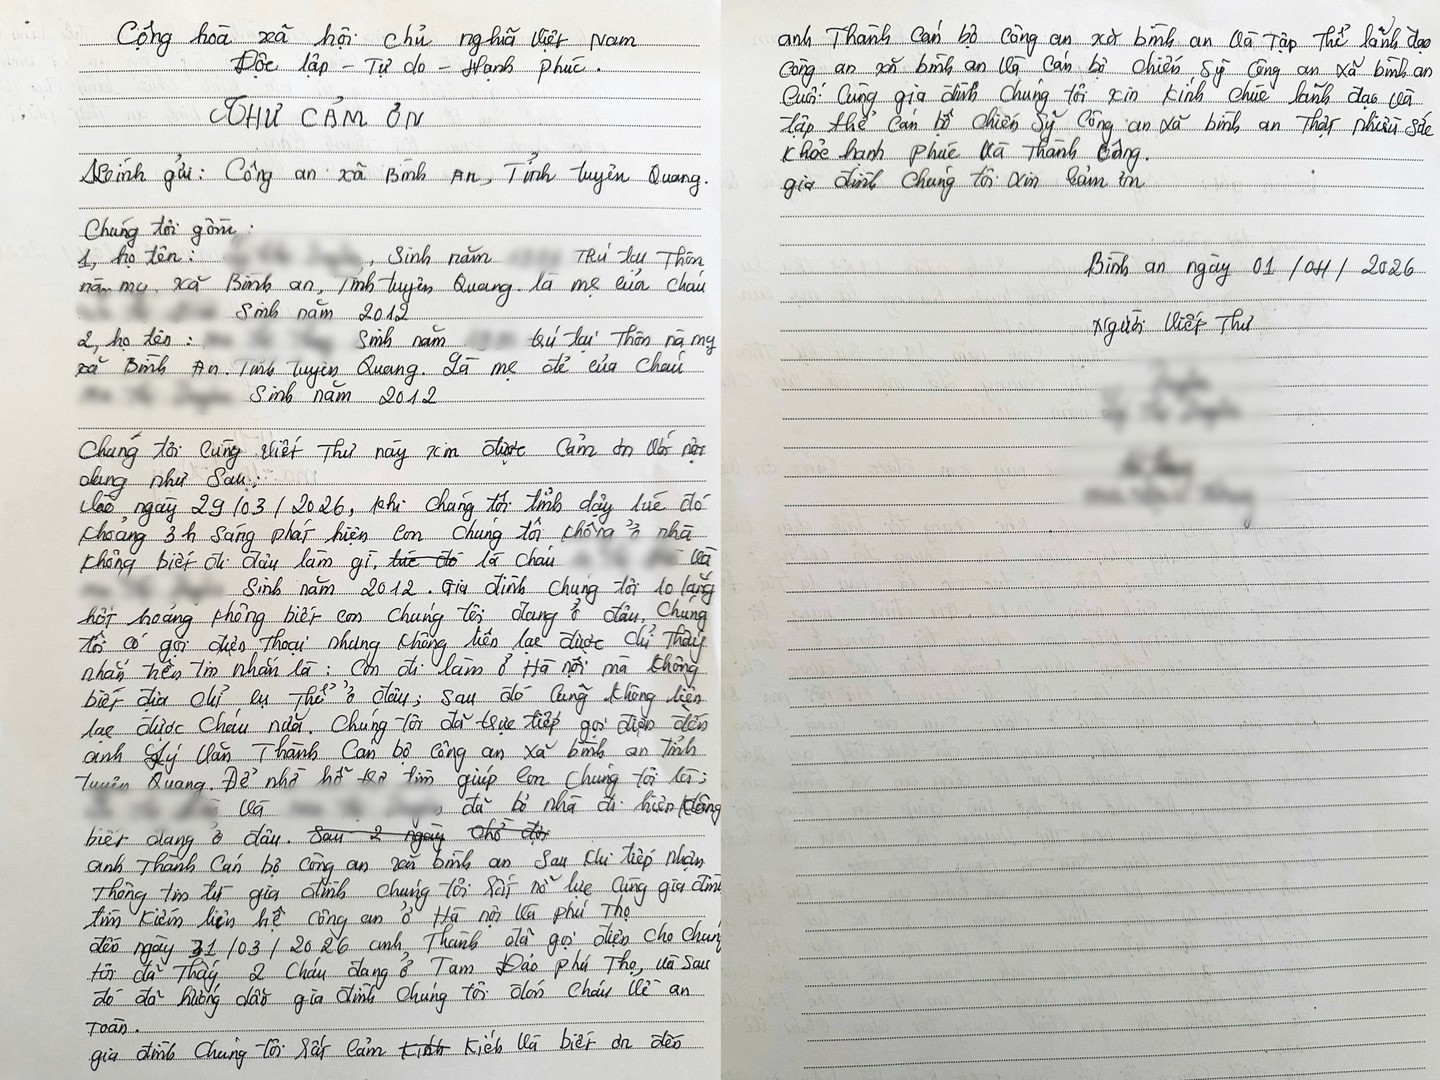 Cộng hoà xã hội chủ nghĩa Việt Nam
Độc lập - Tự do - Hạnh phúc.
THƯ CẢM ƠN
Kính gửi: Công an xã Bình An, Tỉnh tuyên Quang.
Chúng tôi gồm:
1, họ tên: , Sinh năm Trú tại Thôn
nà mỵ, xã Bình an, Tỉnh tuyên Quang. là mẹ của cháu
Sinh năm 2012
2, họ tên: Sinh năm trú tại Thôn nà mỵ
xã Bình An. Tỉnh tuyên Quang. Là mẹ đẻ của cháu
Sinh năm 2012
Chúng tôi cùng viết Thư này xin được Cảm ơn với nội
dung như Sau:
vào ngày 29/03/2026, khi chúng tôi tỉnh dậy lúc đó
khoảng 3h Sáng phát hiện con chúng tôi không ở nhà
không biết đi đâu làm gì, lúc đó là cháu và
Sinh năm 2012. Gia đình chúng tôi lo lắng
hốt hoảng không biết con chúng tôi đang ở đâu, Chúng
tôi có gọi điện Thoại nhưng không liên lạc được chỉ Thấy
nhắn trên tin nhắn là: Con đi làm ở Hà nội mà không
biết địa chỉ cụ Thể ở đâu; Sau đó cũng không liên
lạc được cháu nữa. Chúng tôi đã trực tiếp gọi điện đến
anh Lý Văn Thành Cán bộ công an xã bình an tỉnh
tuyên Quang. Để nhờ hỗ trợ tìm giúp con chúng tôi là;
và đã bỏ nhà đi hiện không
biết đang ở đâu. Sau 2 ngày chờ đợi
anh Thành Cán bộ công an xã bình an Sau khi tiếp nhận
Thông tin từ gia đình chúng tôi rất nỗ lực cùng gia đình
tìm kiếm liên hệ công an ở Hà nội và phú Thọ
đến ngày 31/03/2026 anh Thành đã gọi điện cho chúng
tôi đã Thấy 2 cháu đang ở Tam Đảo phú Thọ, và sau
đó đã hướng dẫn gia đình chúng tôi đón cháu về an
toàn.
gia đình chúng tôi rất cảm kính kích và biết ơn đến
anh Thành cán bộ công an xã bình an và tập thể lãnh đạo
công an xã bình an và cán bộ chiến Sỹ Công an xã bình an
Cuối cùng gia đình chúng tôi xin kính chúc lãnh đạo và
tập thể cán bộ chiến Sỹ công an xã bình an Thật nhiều Sức
khỏe hạnh phúc và Thành Công.
gia đình chúng tôi xin cảm ơn
Bình an ngày 01/04/2026
Người viết Thư